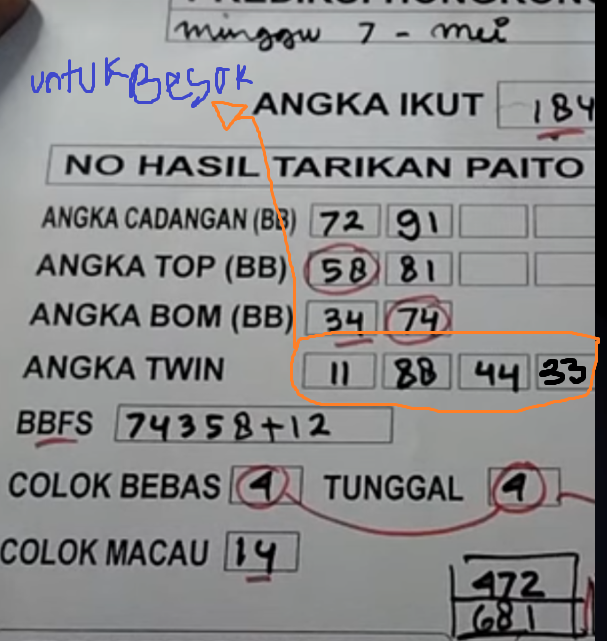 minggu 7 - mei
untuk Besok
ANGKA IKUT 184
NO HASIL TARIKAN PAITO
ANGKA CADANGAN (BB) 72 91
ANGKA TOP (BB) 58 81
ANGKA BOM (BB) 34 74
ANGKA TWIN 11 88 44 33
BBFS 74358+12
COLOK BEBAS 4 TUNGGAL 4
COLOK MACAU 14
472
681